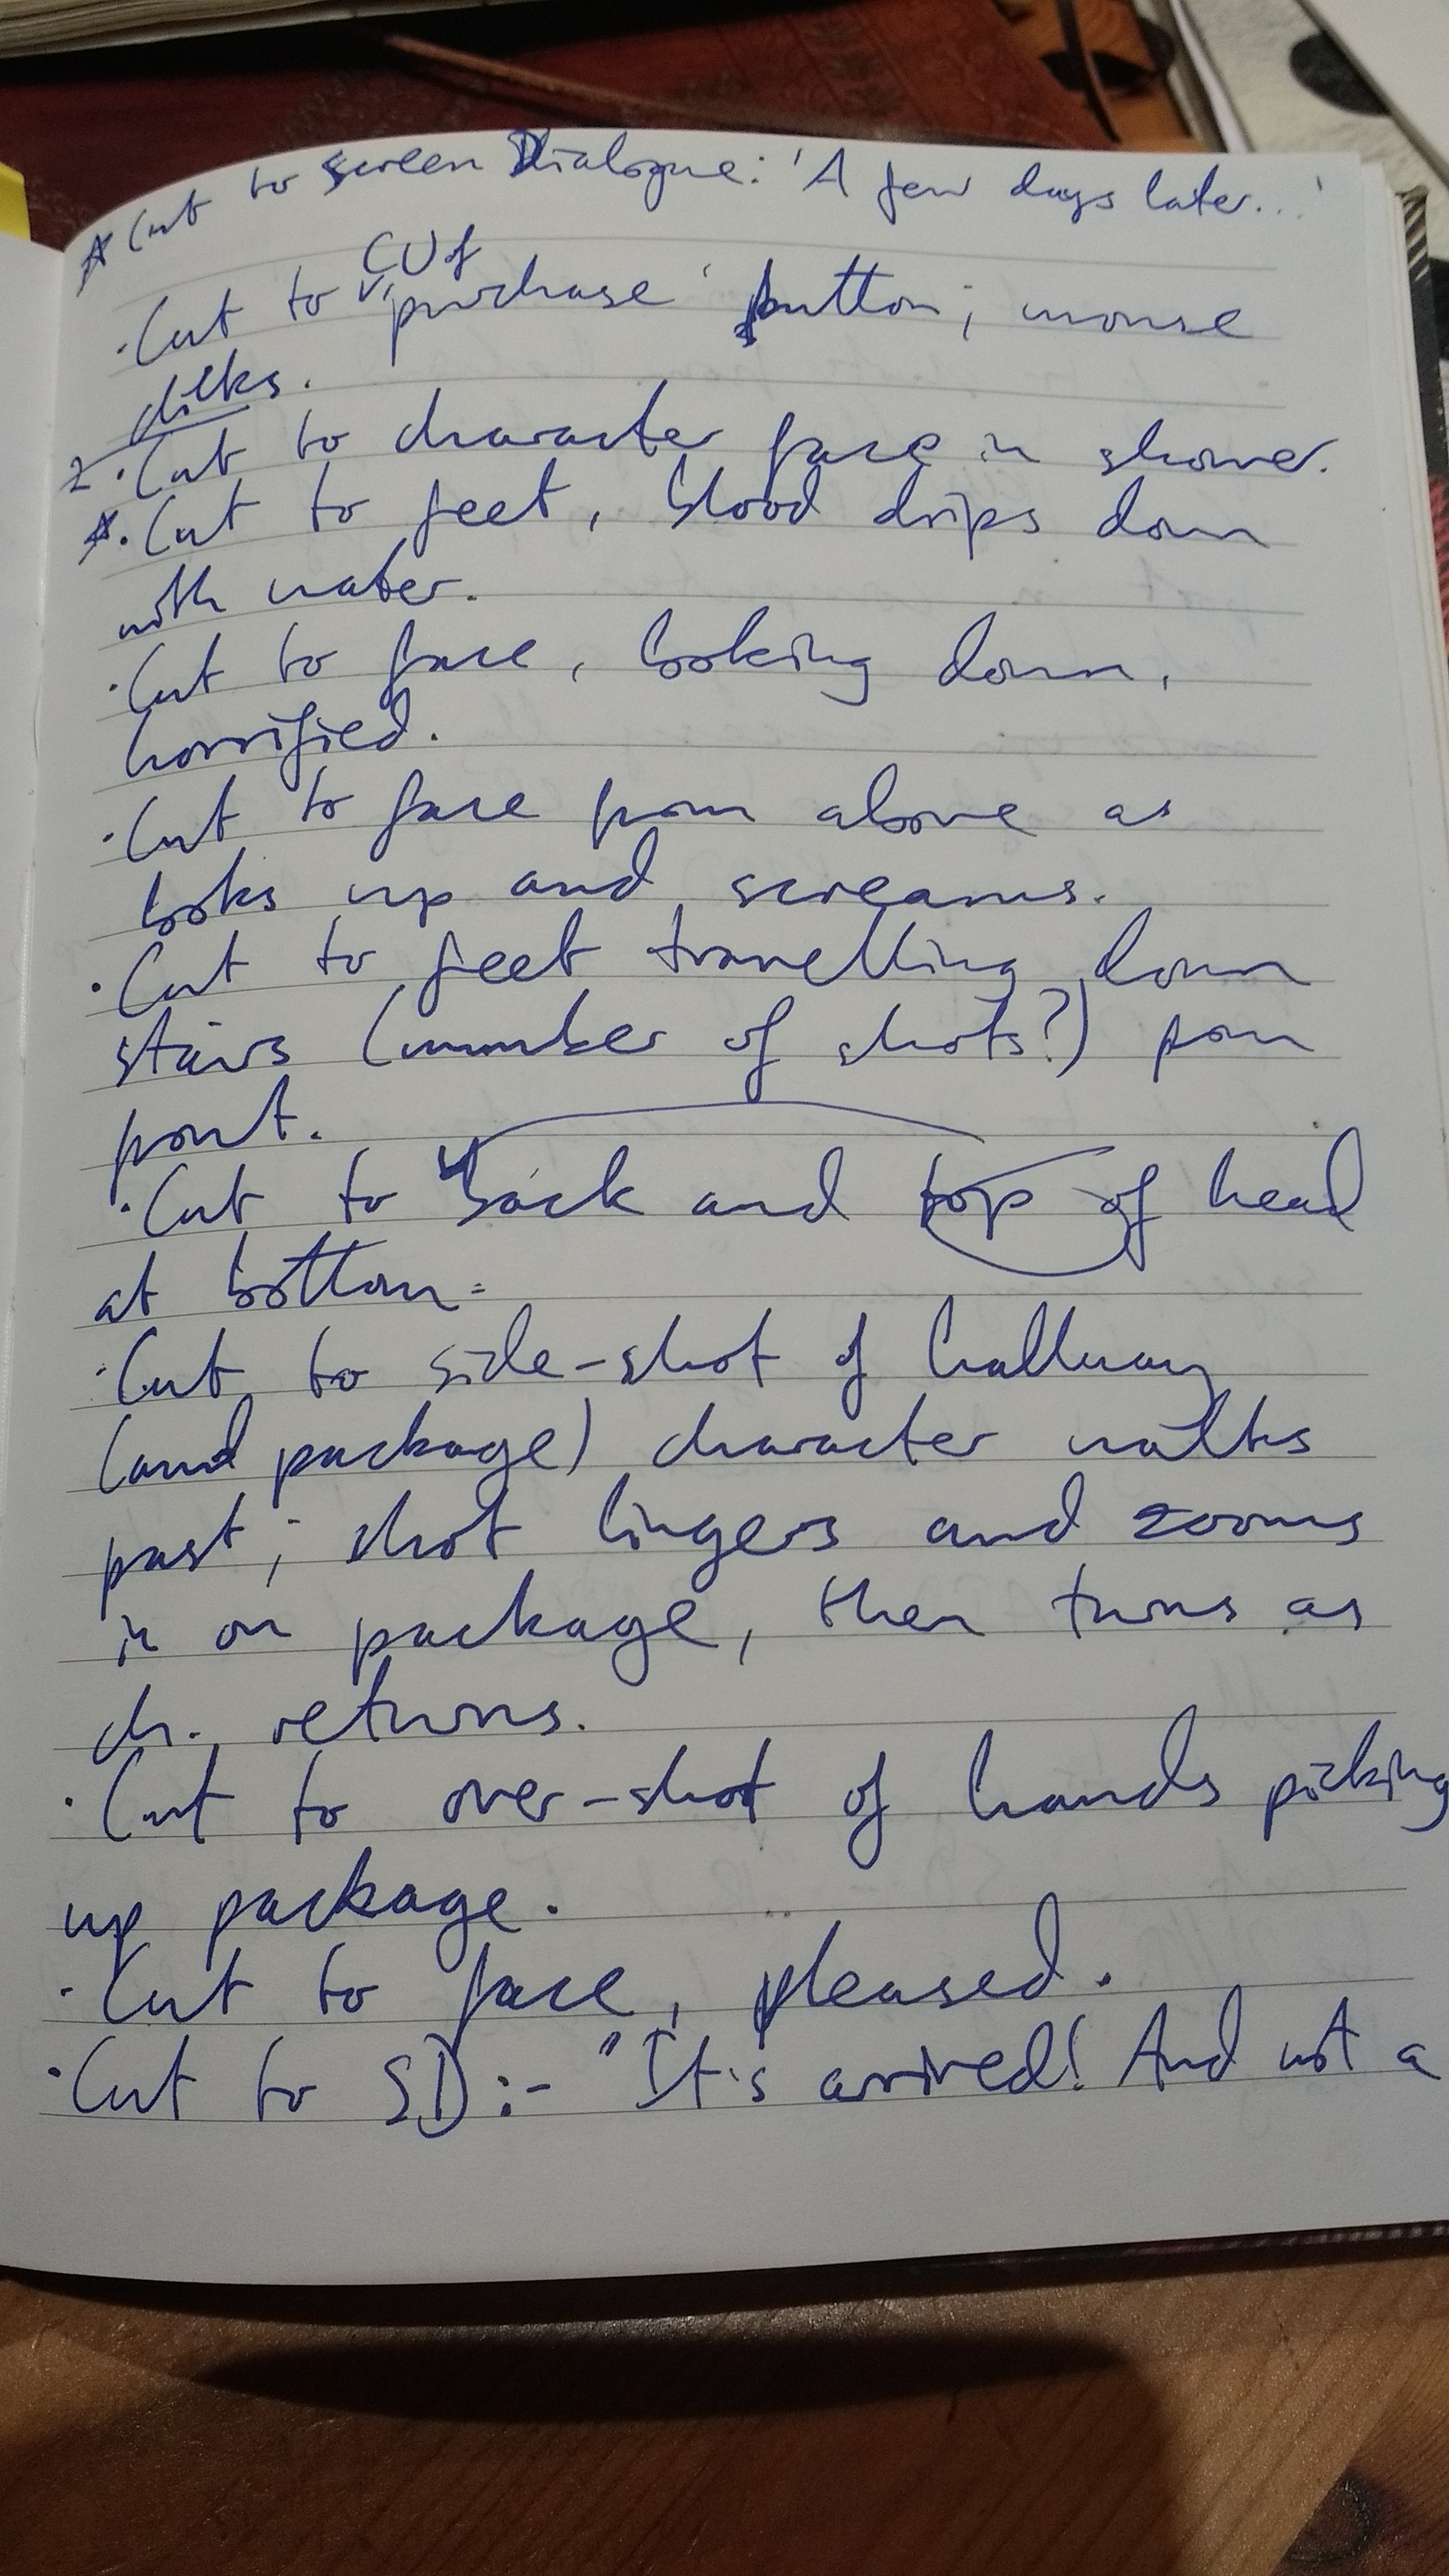 * Cut to screen Dialogue: 'A few days later...'
· Cut to CU of 'purchase' button; mouse
clicks.
2 · Cut to character face in shower.
*· Cut to feet, blood drips down
with water.
· Cut to face, looking down,
horrified.
· Cut to face from above as
looks up and screams.
· Cut to feet travelling down
stairs (number of shots?) from
front.
· Cut to back and top of head
at bottom.
· Cut to side-shot of hallway
(and package) character walks
past; shot lingers and zooms
in on package, then turns as
ch. returns.
· Cut to over-shot of hands picking
up package.
· Cut to face, pleased.
· Cut to SD:- "It's arrived! And not a